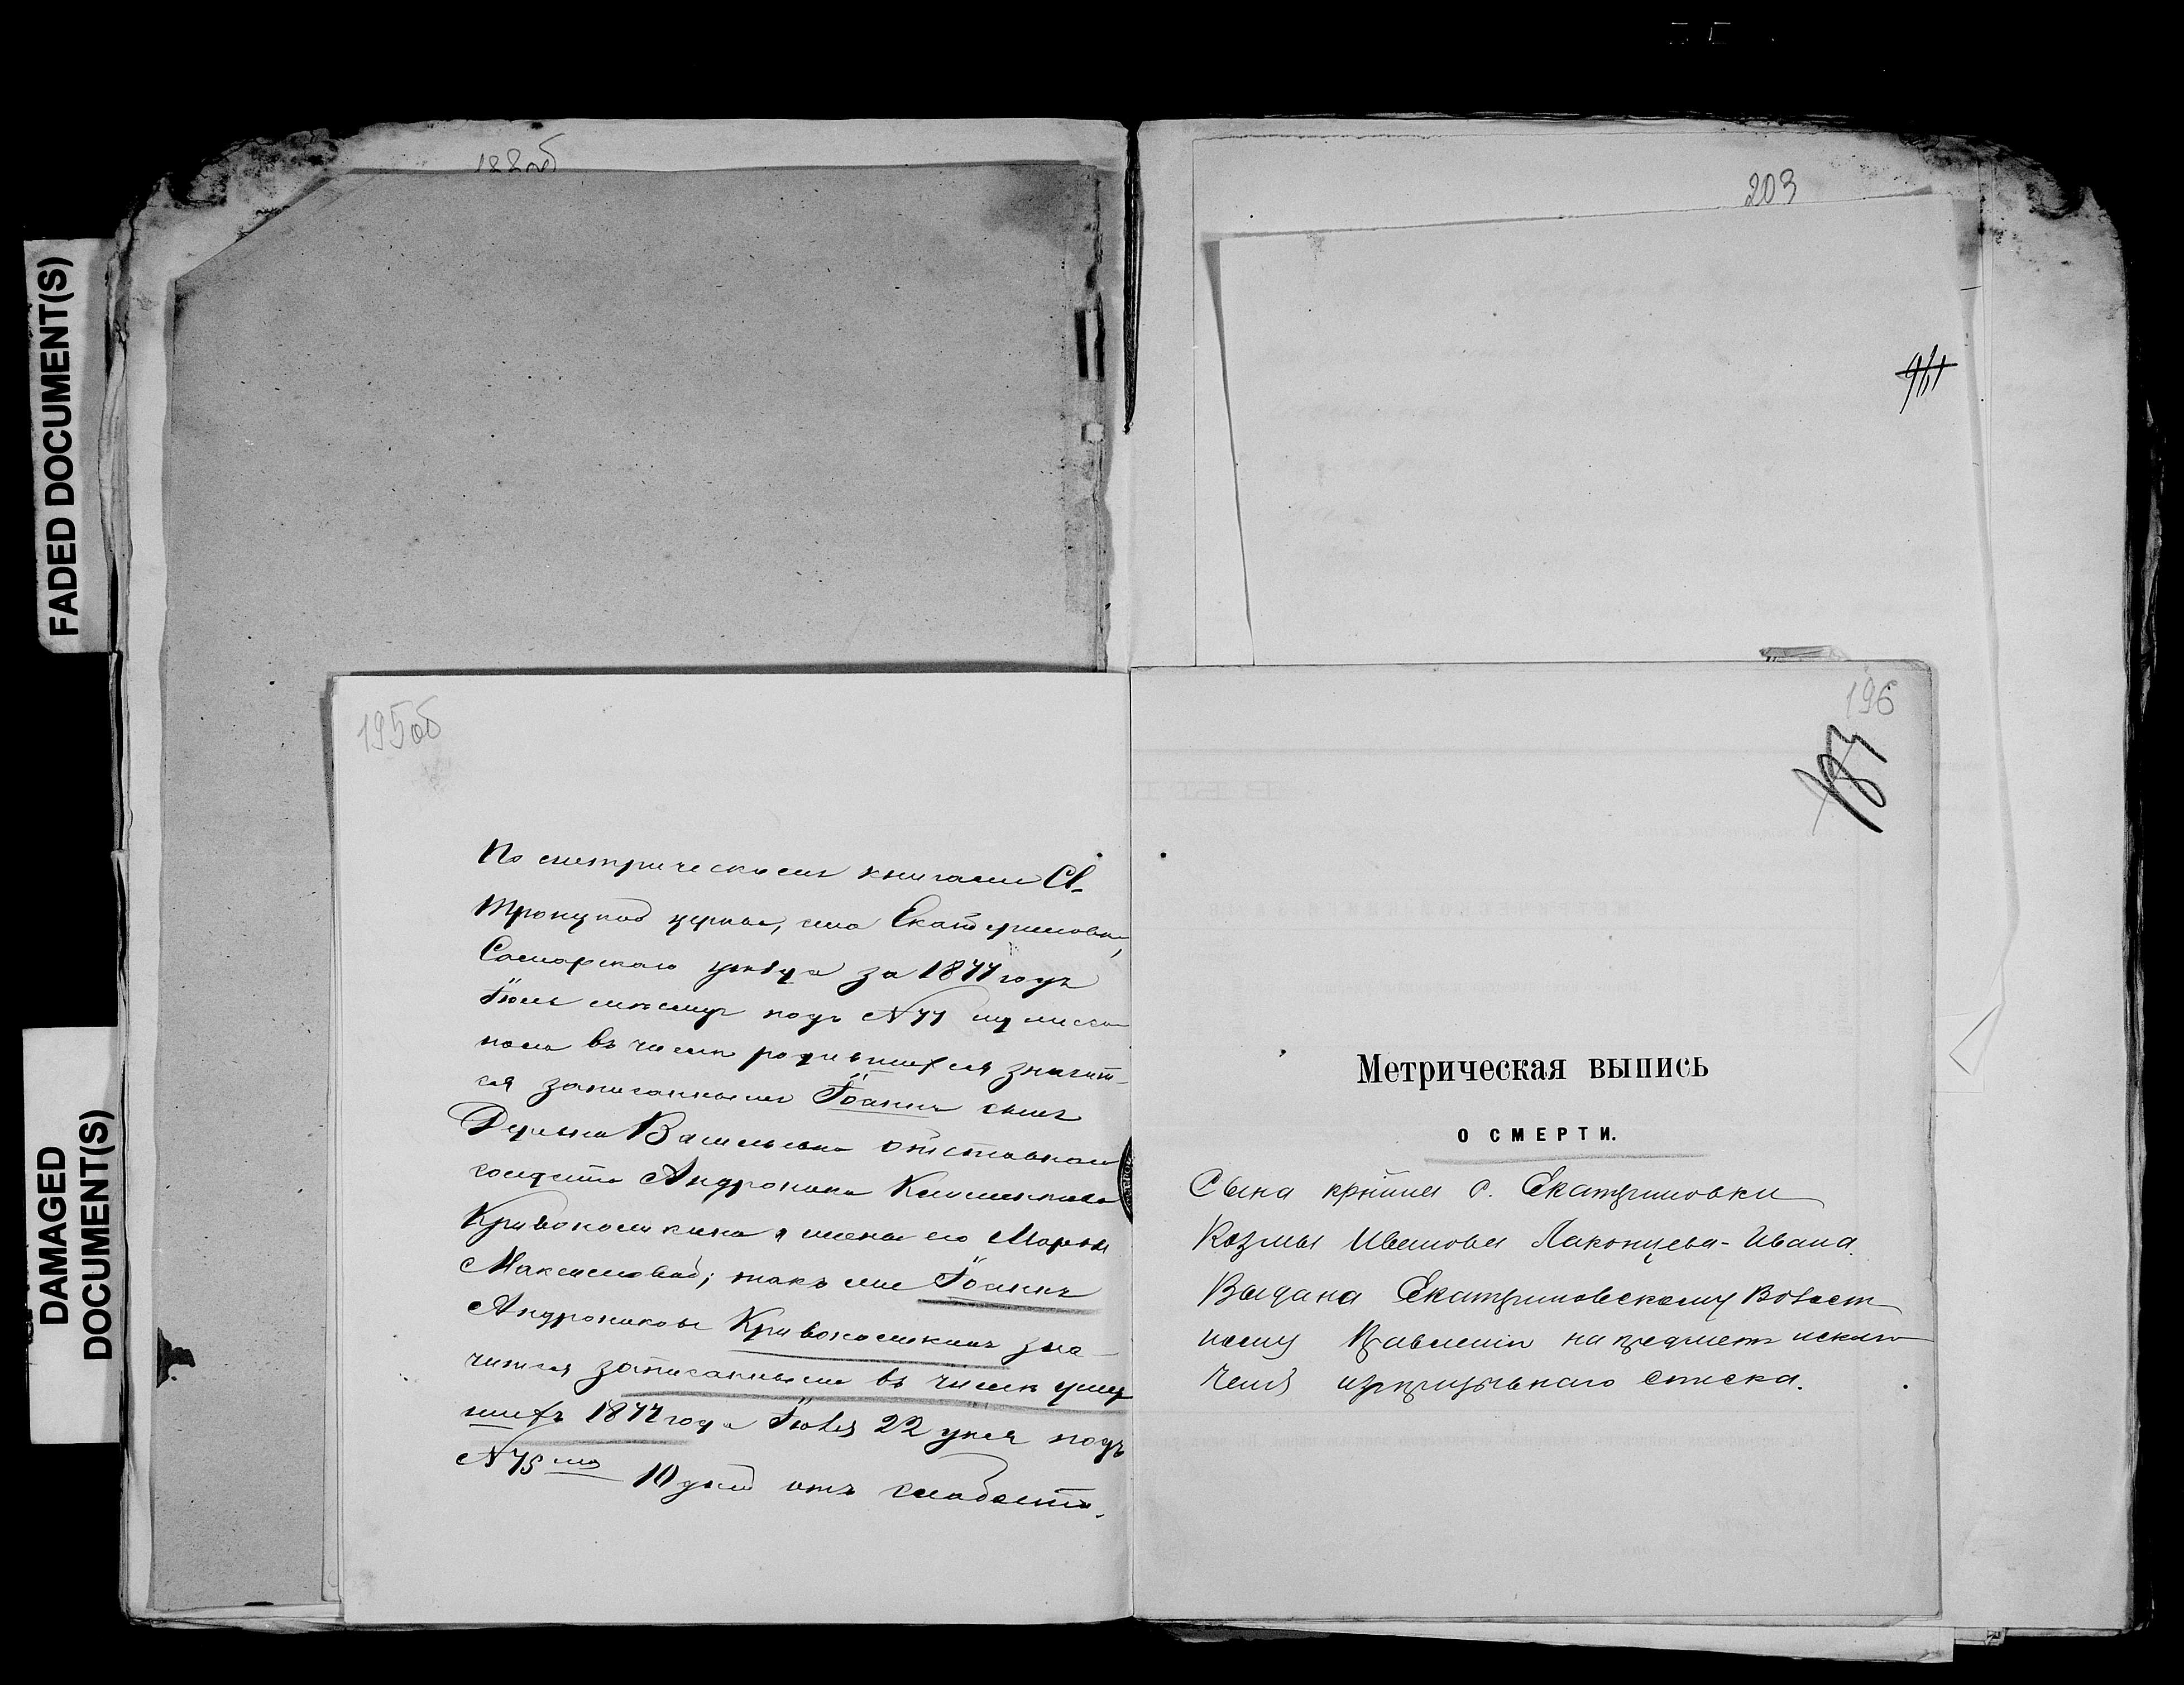 188об
203
FADED DOCUMENT(S)
DAMAGED
DOCUMENT(S)
195об
По метрическимъ книгамъ Св.
Троицкой церкви, села Екатериновки,
Самарскаго уѣзда за 1877 годъ
Іюль мѣсяцъ подъ №77 мужеска
пола въ числѣ родившихся значит-
ся записаннымъ Іоаннъ сынъ
Васильева отставнаго
солдата Андроника Климентова
Кривоножкина и жены его Марѳы
Максимовой; такъ же Іоаннъ
Андрониковъ Кривоножкинъ зна-
чится записаннымъ въ числѣ умер
шихъ 1877 года Іюля 22 дня подъ
№75мъ 10 дней отъ слабости.
196
187
Метрическая выпись
О СМЕРТИ.
Сына крѣнина с. Екатериновки
Козмы Иванова Лаконцева - Ивана.
Выдана Екатериновскому Волост
ному Правленію на предметъ исклю
ченія изъ призывнаго списка.